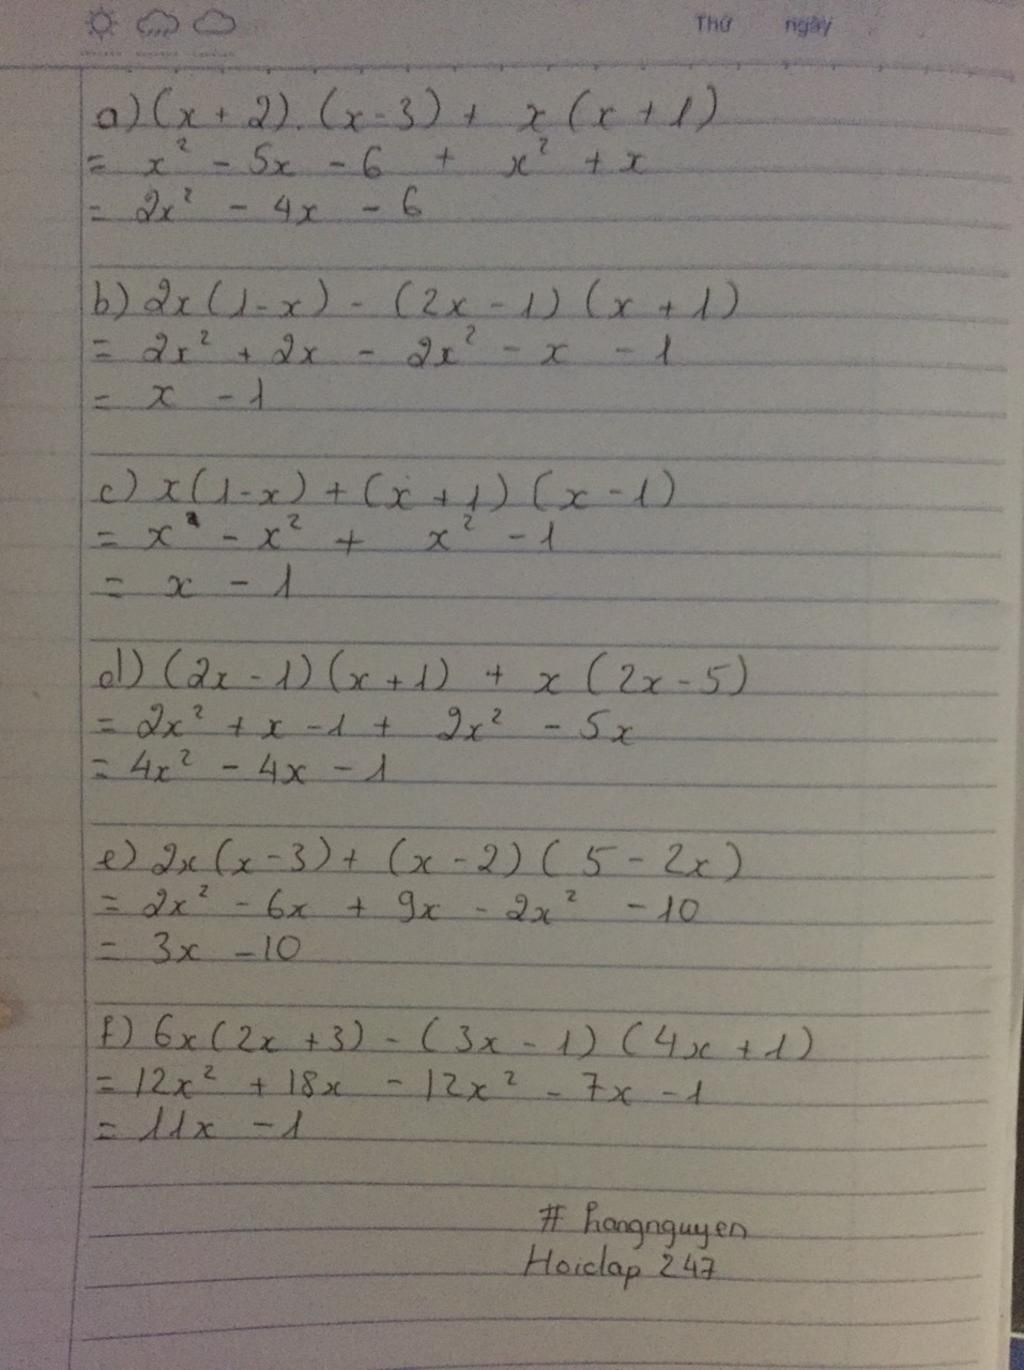 Thứ ngày
a) (x + 2). (x - 3) + x (x + 1)
= x² - 5x - 6 + x² + x
= 2x² - 4x - 6
b) 2x (1 - x) - (2x - 1) (x + 1)
= 2x² + 2x - 2x² - x - 1
= x - 1
c) x (1 - x) + (x + 1) (x - 1)
= x - x² + x² - 1
= x - 1
d) (2x - 1) (x + 1) + x (2x - 5)
= 2x² + x - 1 + 2x² - 5x
= 4x² - 4x - 1
e) 2x (x - 3) + (x - 2) (5 - 2x)
= 2x² - 6x + 9x - 2x² - 10
= 3x - 10
f) 6x (2x + 3) - (3x - 1) (4x + 1)
= 12x² + 18x - 12x² - 7x - 1
= 11x - 1
# hangnguyen
Hoidap 247